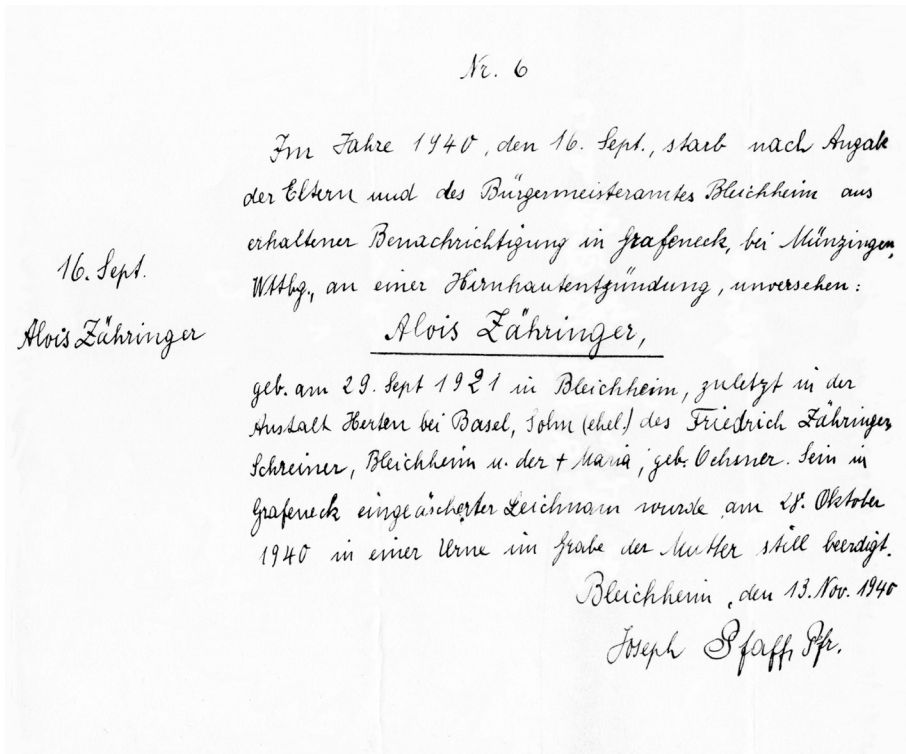 Nr. 6
Im Jahre 1940, den 16. Sept., starb nach Angabe
der Eltern und des Bürgermeisteramtes Bleichheim aus
erhaltener Benachrichtigung in Grafeneck, bei Münzingen,
Wttbg., an einer Hirnhautentzündung, unversehen:
16. Sept.
Alois Zähringer
Alois Zähringer,
geb. am 29. Sept 1921 in Bleichheim, zuletzt in der
Anstalt Herten bei Basel, Sohn (ehel.) des Friedrich Zähringer,
Schreiner, Bleichheim u. der + Maria, geb. Ochsner. Sein in
Grafeneck eingeäscherter Leichnam wurde am 28. Oktober
1940 in einer Urne im Grabe der Mutter still beerdigt.
Bleichheim, den 13. Nov. 1940
Joseph Pfaff, Pfr.